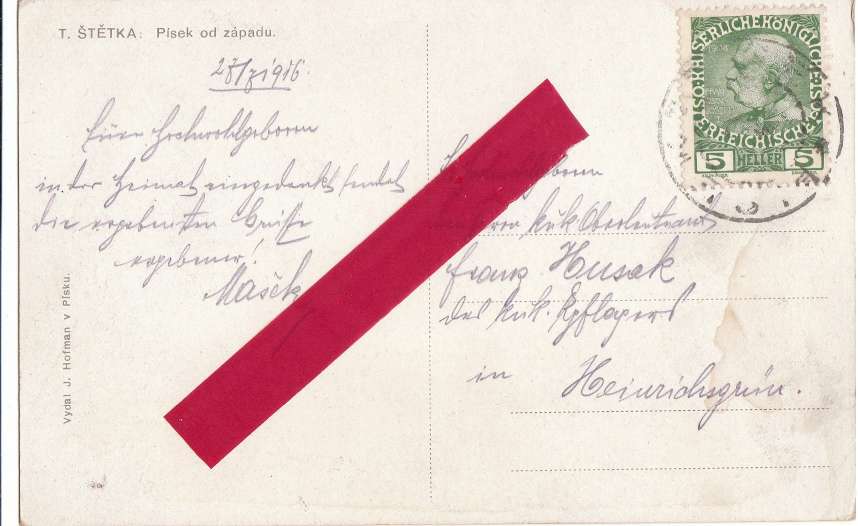 T. ŠTĚTKA: Písek od západu.
28/XI 916.
Euer Hochwohlgeboren
in der Heimat eingedenkt sendet
die ergebensten Grüsse
ergebener!
Mašek
Vydal J. Hofman v Písku.
KAISERLICHE KÖNIGLICHE ÖSTERREICHISCHE
5 HELLER 5
k.u.k. Oberleutnant
Franz Husak
des k.u.k.
in Heinrichsgrün.